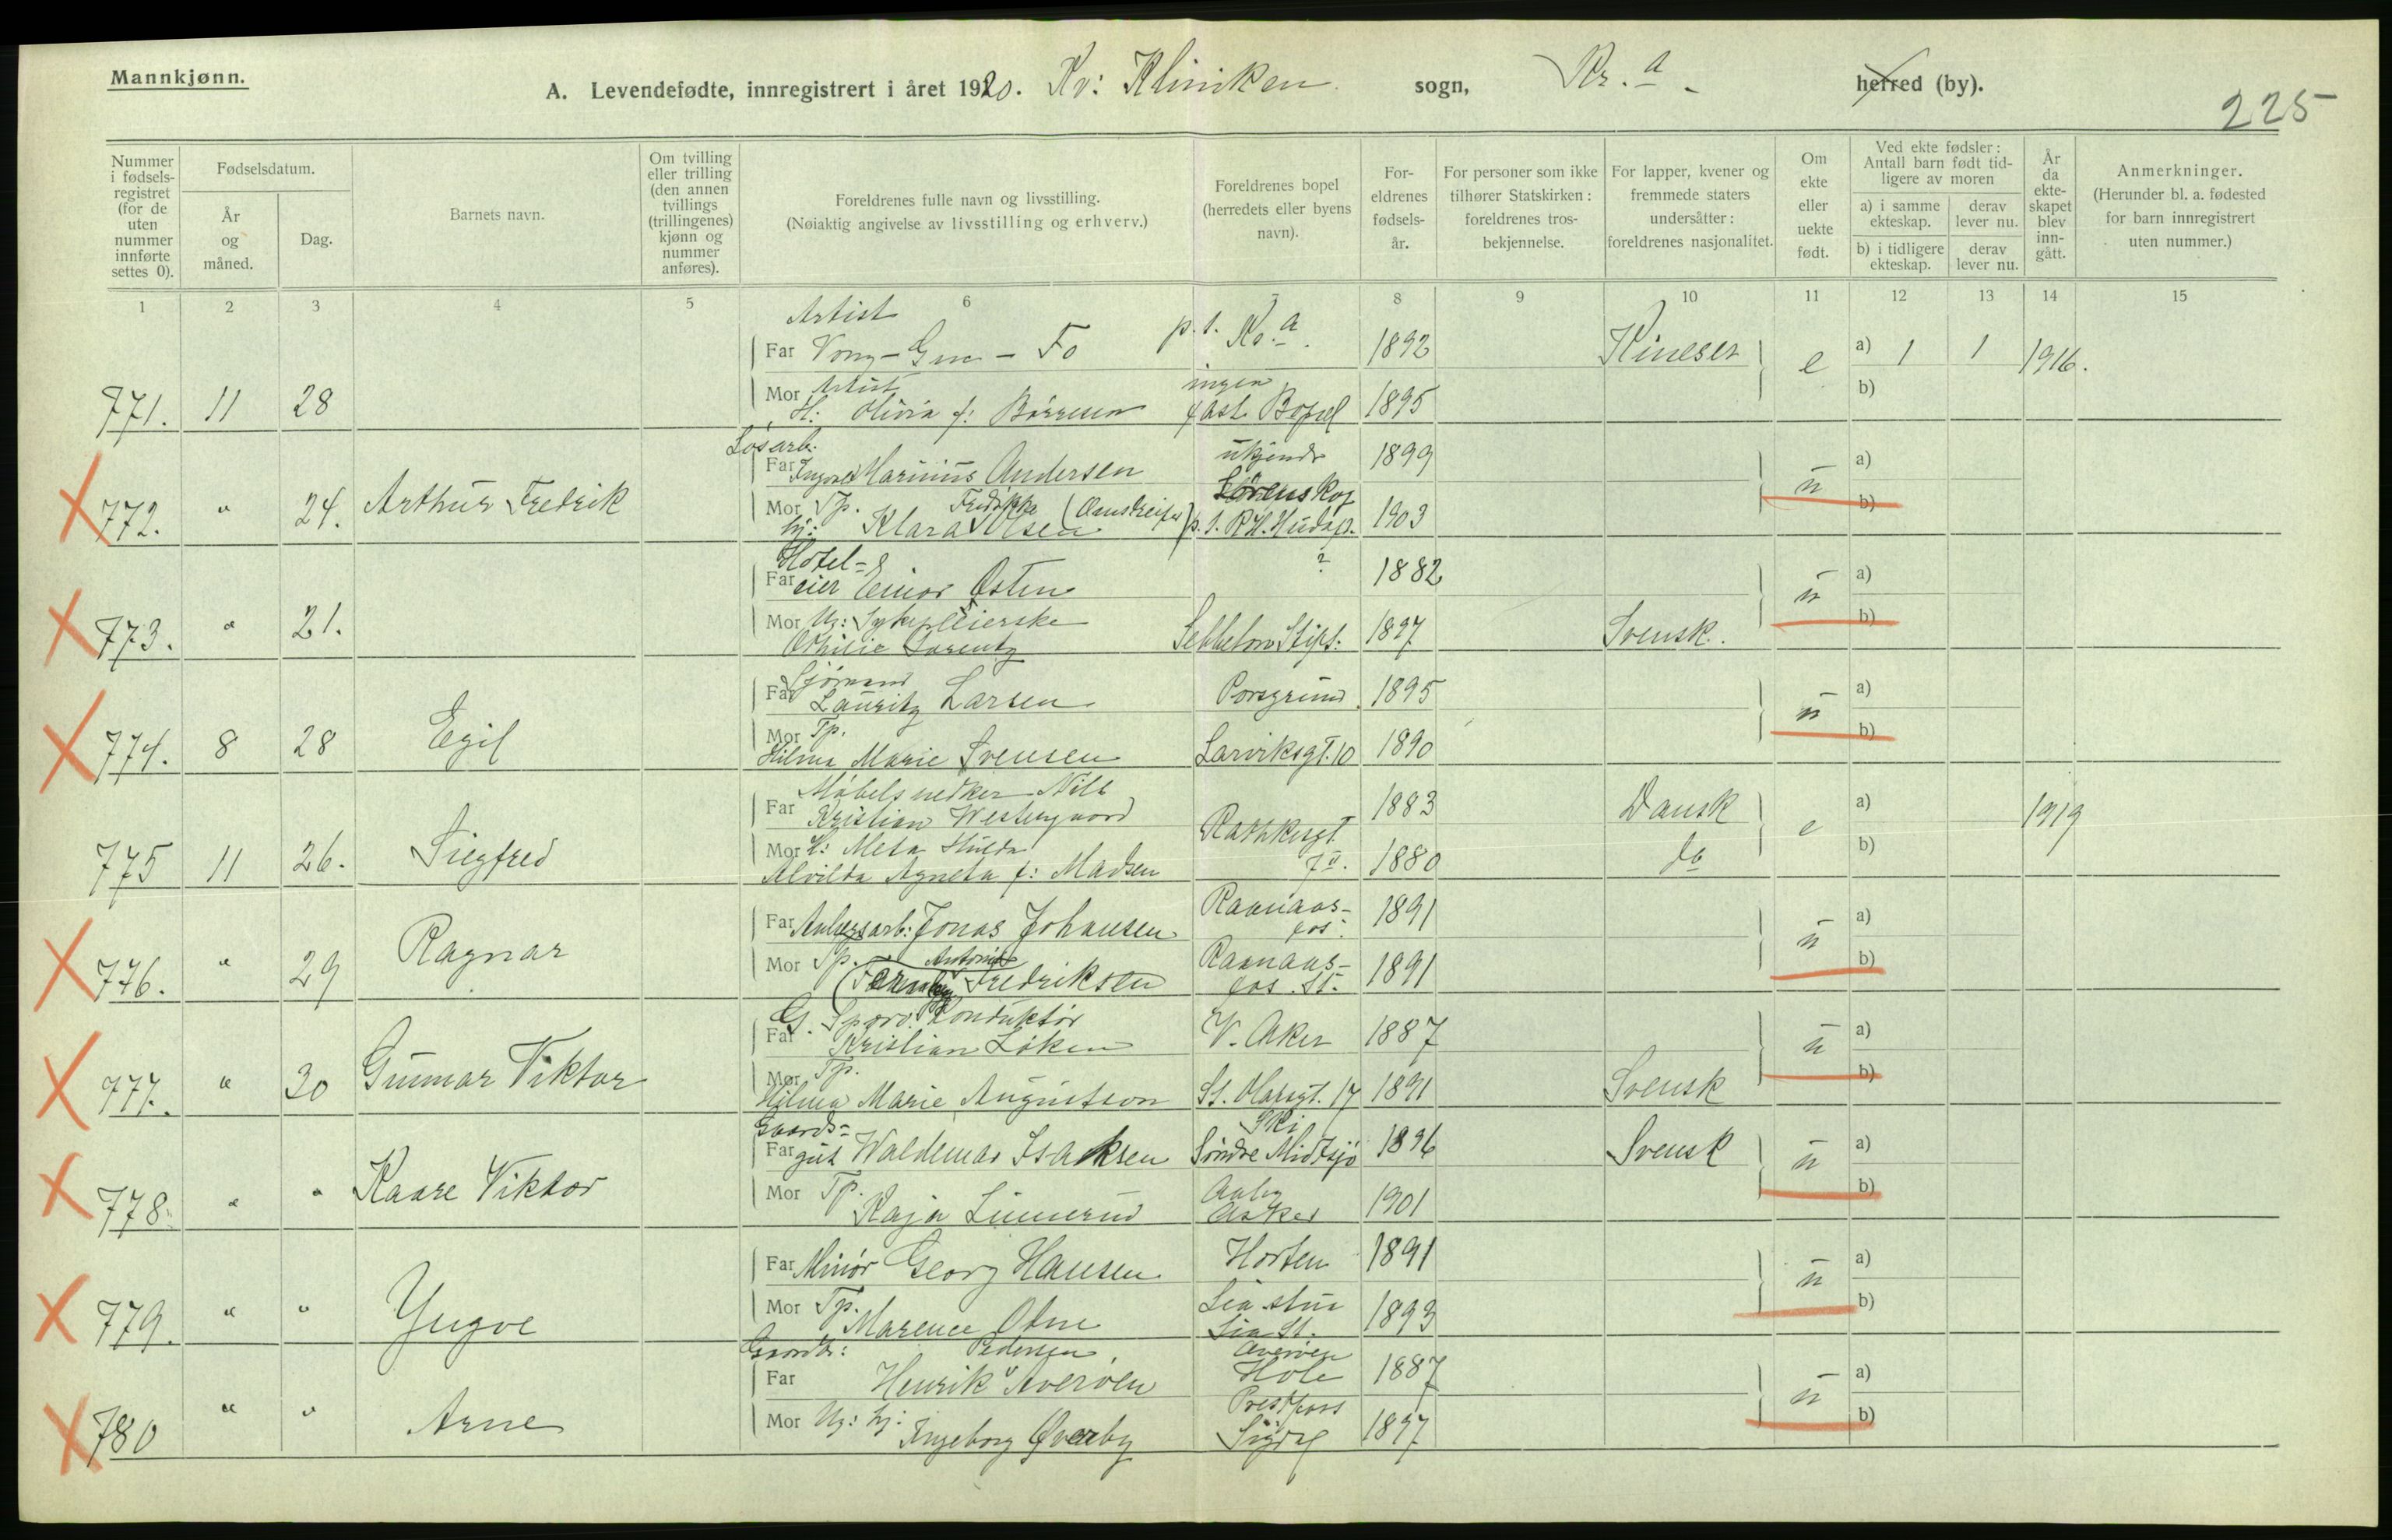 Mannkjønn.
A. Levendefødte, innregistrert i året 1920. Kv: Kliniken sogn, Kr.a herred (by).
225
Nummer i fødsels-registret (for de uten nummer innførte settes 0).
Fødselsdatum.
År og måned.
Dag.
Barnets navn.
Om tvilling eller trilling (den annen tvillings (trillingenes) kjønn og nummer anføres).
Foreldrenes fulle navn og livsstilling.
(Nøiaktig angivelse av livsstilling og erhverv.)
Foreldrenes bopel (herredets eller byens navn).
For-eldrenes fødsels-år.
For personer som ikke tilhører Statskirken: foreldrenes tros-bekjennelse.
For lapper, kvener og fremmede staters undersåtter: foreldrenes nasjonalitet.
Om ekte eller uekte født.
Ved ekte fødsler: Antall barn født tid-ligere av moren
a) i samme ekteskap.
derav lever nu.
b) i tidligere ekteskap.
derav lever nu.
År da ekte-skapet blev inn-gått.
Anmerkninger.
(Herunder bl. a. fødested for barn innregistrert uten nummer.)
1 2 3 4 5 6 7 8 9 10 11 12 13 14 15
Artist
Far Vong - - Fo p. t. Kr.a. 1892 Kineser e a) 1 1 1916.
Mor Artist ingen b)
771. 11 28 H. Olivia f: Børresen fast Bopæl 1895
Løsarb:
Far Ingvald Marinus Andersen ukjendt 1899 u a)
Mor Tp. Fredrikke Lørenskog b)
772. " 24. Arthur Fredrik hj: Klara Olsen p. t. 1903
Hotel-
Far eier Einar Osten ? 1882 u a)
Mor Ug: Sykepleierske b)
773. " 21. Othilie Lorentz Sebbelows Stift. 1897 Svensk.
Sjømand
Far Lauritz Larsen Porsgrund. 1895 u a)
Mor Tp. b)
774. 8 28 Egil Hilma Marie Svensen Larviksgt. 10 1890
Møbelsnedker Nils
Far Kristian Westergaard 1883 Dansk e a) 1919
Mor H: Meta Hulda Rathkesgt b)
775 11 26. Siegfred Alvilda Agneta f: Madsen 7 II. 1880 do
Far Anlægsarb: Jonas Johansen Raanaas-fos. 1891 u a)
Mor Tp. Antonie Raanaas- b)
776. " 29 Ragnar Fredriksen fos St. 1891
G. Sporv. Konduktør
Far Kristian Løken V. Aker 1887 u a)
Mor Tp. b)
777. " 30 Gunnar Viktor Hilma Marie Augustson St. Olavsgt. 17 1891 Svensk
Gaards- Ski
Far gut Waldemar Isaksen Søndre Midtsjø 1896 Svensk u a)
Mor Tp. b)
778. " " Kaare Viktor Kaja Linnerud Asker 1901
Far Minør Georg Hansen Horten 1891 u a)
Mor Tp. Lia stua b)
779. " " Yngve Marence Otne Lia St. 1893
Gaardbr: Pedersen Averøen
Far Henrik Averøen Hole 1887 u a)
Mor Ug: hj: Prestfoss b)
780 " " Arne Ingeborg Øverby Sigdal 1897